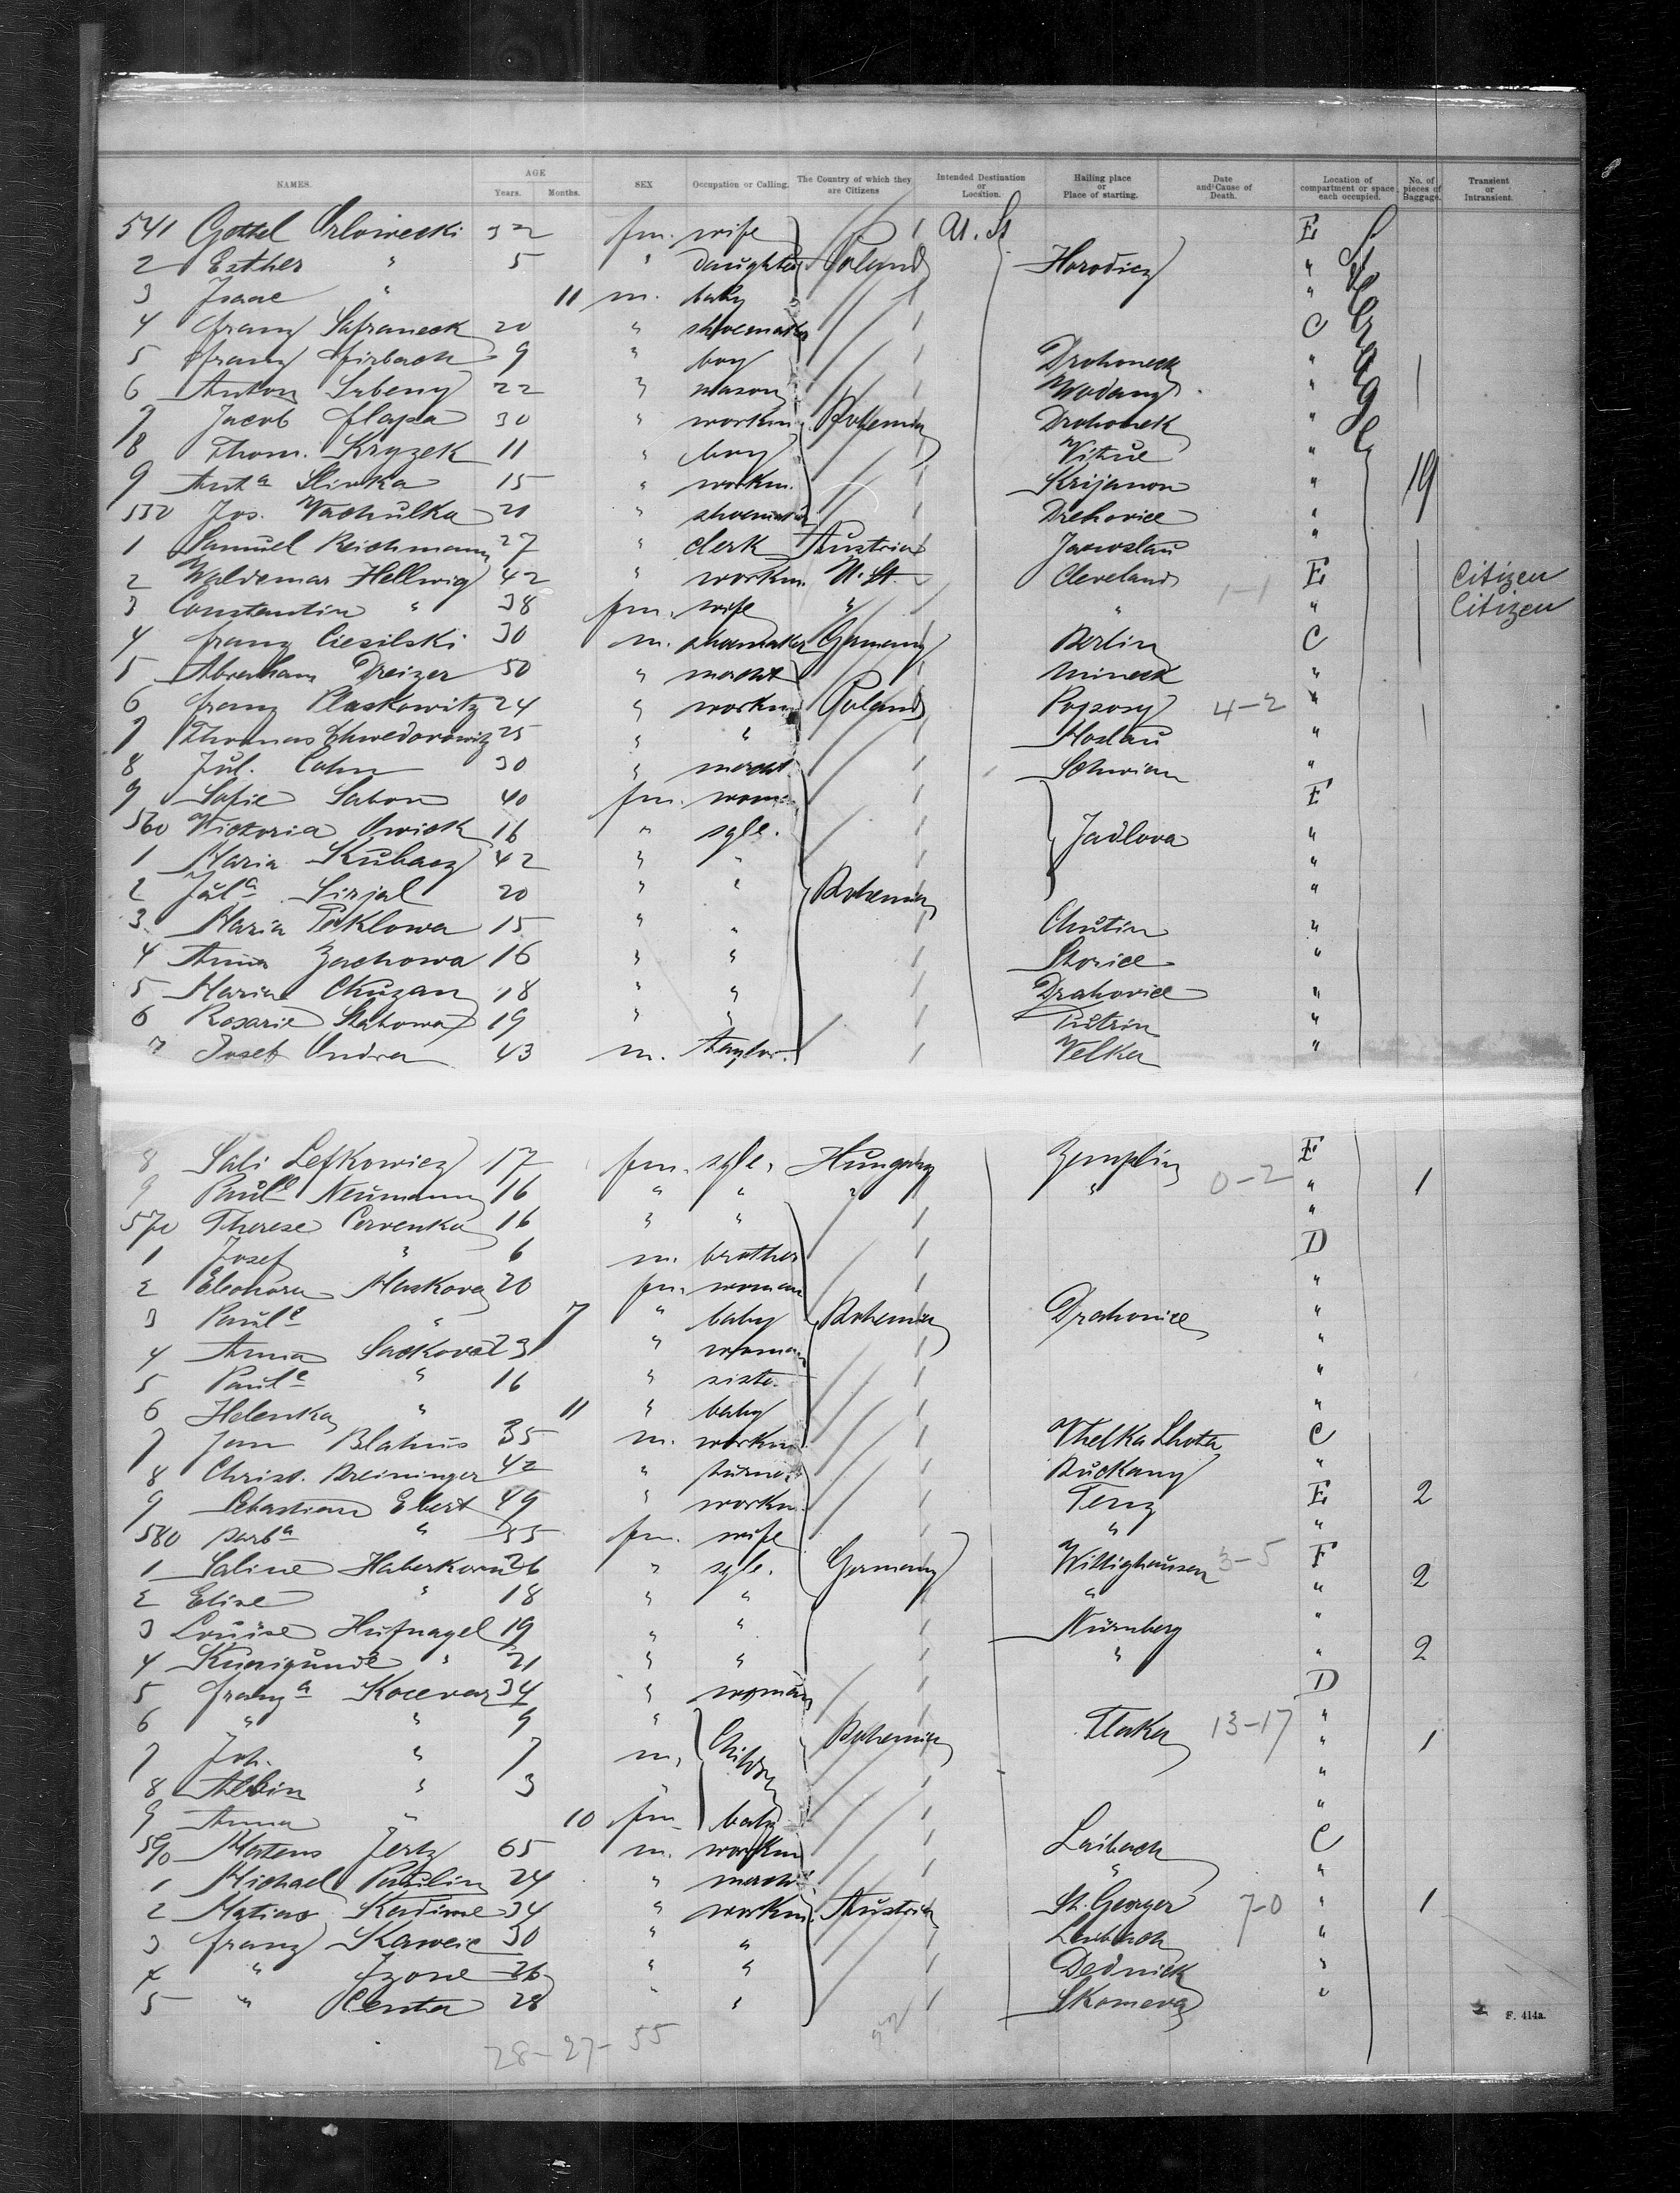 NAMES. AGE Years. Months. SEX Occupation or Calling. The Country of which they are Citizens Intended Destination or Location. Hailing place or Place of starting. Date and Cause of Death. Location of compartment or space each occupied. No. of pieces of Baggage. Transient or Intransient.
541 Gottel Orlowecki 32 fm. wife U. St E
2 Esther " 5 " daughter Poland Horodicz "
3 Isaac " 11 m. baby "
4 Franz Safraneck 20 " shoemaker C
5 Franz Firbach 9 " boy Drohoneck "
6 Anton Srbeny 22 " mason Wodany "
7 Jacob Flapa 30 " workm Bohemia Drohonek "
8 Thom. Kryzek 11 " boy Vitue "
9 Anta Slinka 15 " workm. Krijanon " 19
550 Jos. Wachulka 21 " shoemaker Drehovice "
1 Samuel Reichmann 27 " clerk Austria Jaroslau "
2 Waldemar Hellwig 42 " workm. U. St Cleveland 1-1 E Citizen
3 Constantin " 38 fm. wife " " " Citizen
4 Franz Ciesilski 30 m. shoemaker Germany Berlin C
5 Abraham Dreizer 50 " mercht Mineck "
6 Franz Plaskowitz 24 " workm Poland Poposy 4-2 "
7 Thomas Chwedorowitz 25 " " Moslau "
8 Jul. Cohn 30 " mercht. Schwian "
9 Sofie Sabon 40 fm. wom. E
560 Victoria Owick 16 " sgle. Jadlova "
1 Maria Kubacz 42 " " "
2 Jula Sirjal 20 " " Bohemia "
3 Maria Peklowa 15 " " Chutin "
4 Anna Zachowa 16 " " Skorice "
5 Maria Chuzan 18 " " Drahovice "
6 Rosarie Stahowa 19 " " Putrin "
7 Josef Ondra 43 m. taylor. Velka "
8 Sali Lefkowicz 17 fm. sgle. Hungary Zemplin 0-2 E
9 Paule Neumann 16 " " " " " 1
570 Therese Cervenka 16 " " "
1 Josef " 6 m. brother D
2 Eleonora Maskova 20 fm. woman "
3 Paule " 7 " baby Bohemia Drahonice "
4 Anna Sackova 23 " woman "
5 Paule " 16 " siste. "
6 Helenka " 11 " baby "
7 Jan Blahus 35 m. workm. Vhelka Lhota C
8 Christ. Breininger 42 " turner Buckany "
9 Sebastian Ebert 49 " workm. Tenz E 2
580 Barba " 55 fm. wife " "
1 Saline Haberkorn 26 " sgle. Germany Willighausen 3-5 F 2
2 Elise " 18 " " " "
3 Louise Hufnagel 19 " " Nürnberg "
4 Kunigunde " 21 " " " " 2
5 Franza Kocevar 34 " woman D
6 " " 9 " Bohemia Tlaka 13-17 "
7 Joh. " 7 m. Children " 1
8 Albin " 3 " "
9 Anna " 10 fm. baby "
590 Matens Jertz 65 m. workm Laibach C
1 Michael Paulin 24 " mercht " "
2 Matias Kadime 34 " workm. Austria St. Georger 7-0 " 1
3 Franz Kaweic 30 " " Laibach "
4 " Jzone 26 " " Dednick "
5 " Centa 28 " " Skomeva "
28-27-55
F. 414a.